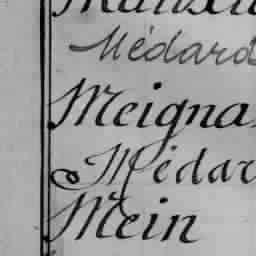 Médard
Meigna
Médar
Mein